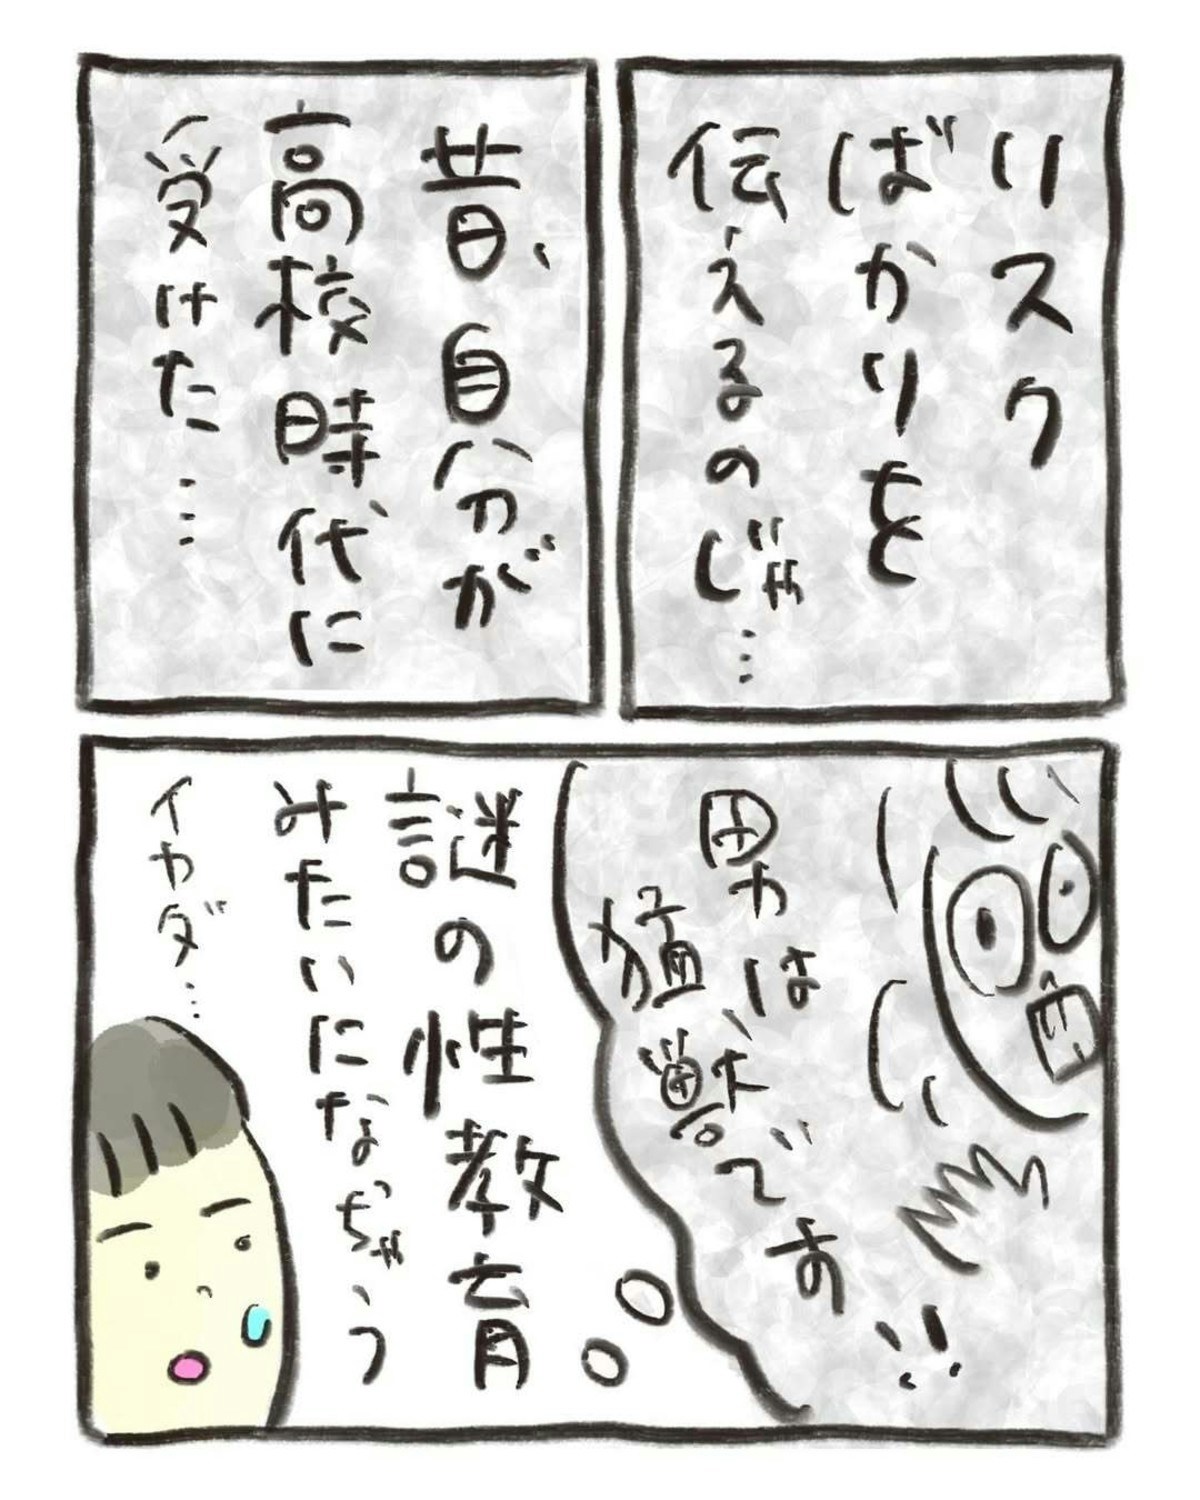 リスク
ばかりを
伝えるのじゃ…
昔、自分が
高校時代に
受けた…
男は
猛獣です!!
謎の性教育
みたいになっちゃう
イカダ…